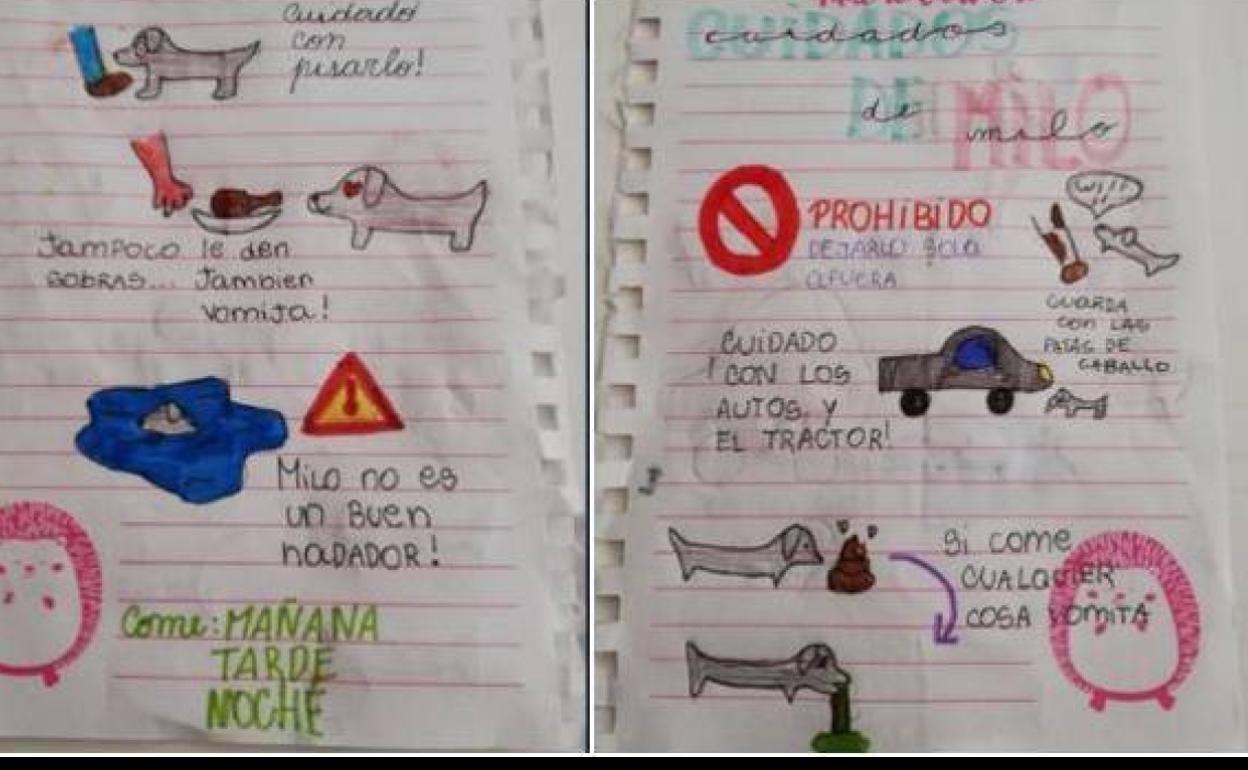 Cuidado
con
pisarlo!
Tampoco le den
sobras... Tambien
vomita!
Milo no es
un buen
nadador!
Come: MAÑANA
TARDE
NOCHE
CUIDADOS
cuidados
DE MILO
de milo
PROHIBIDO
DEJARLO SOLO
AFUERA
WI!!
GUARDA
CON LAS
PATAS DE
CABALLO
CUIDADO
! CON LOS
AUTOS Y
EL TRACTOR!
Si come
CUALQUIER
COSA VOMITA